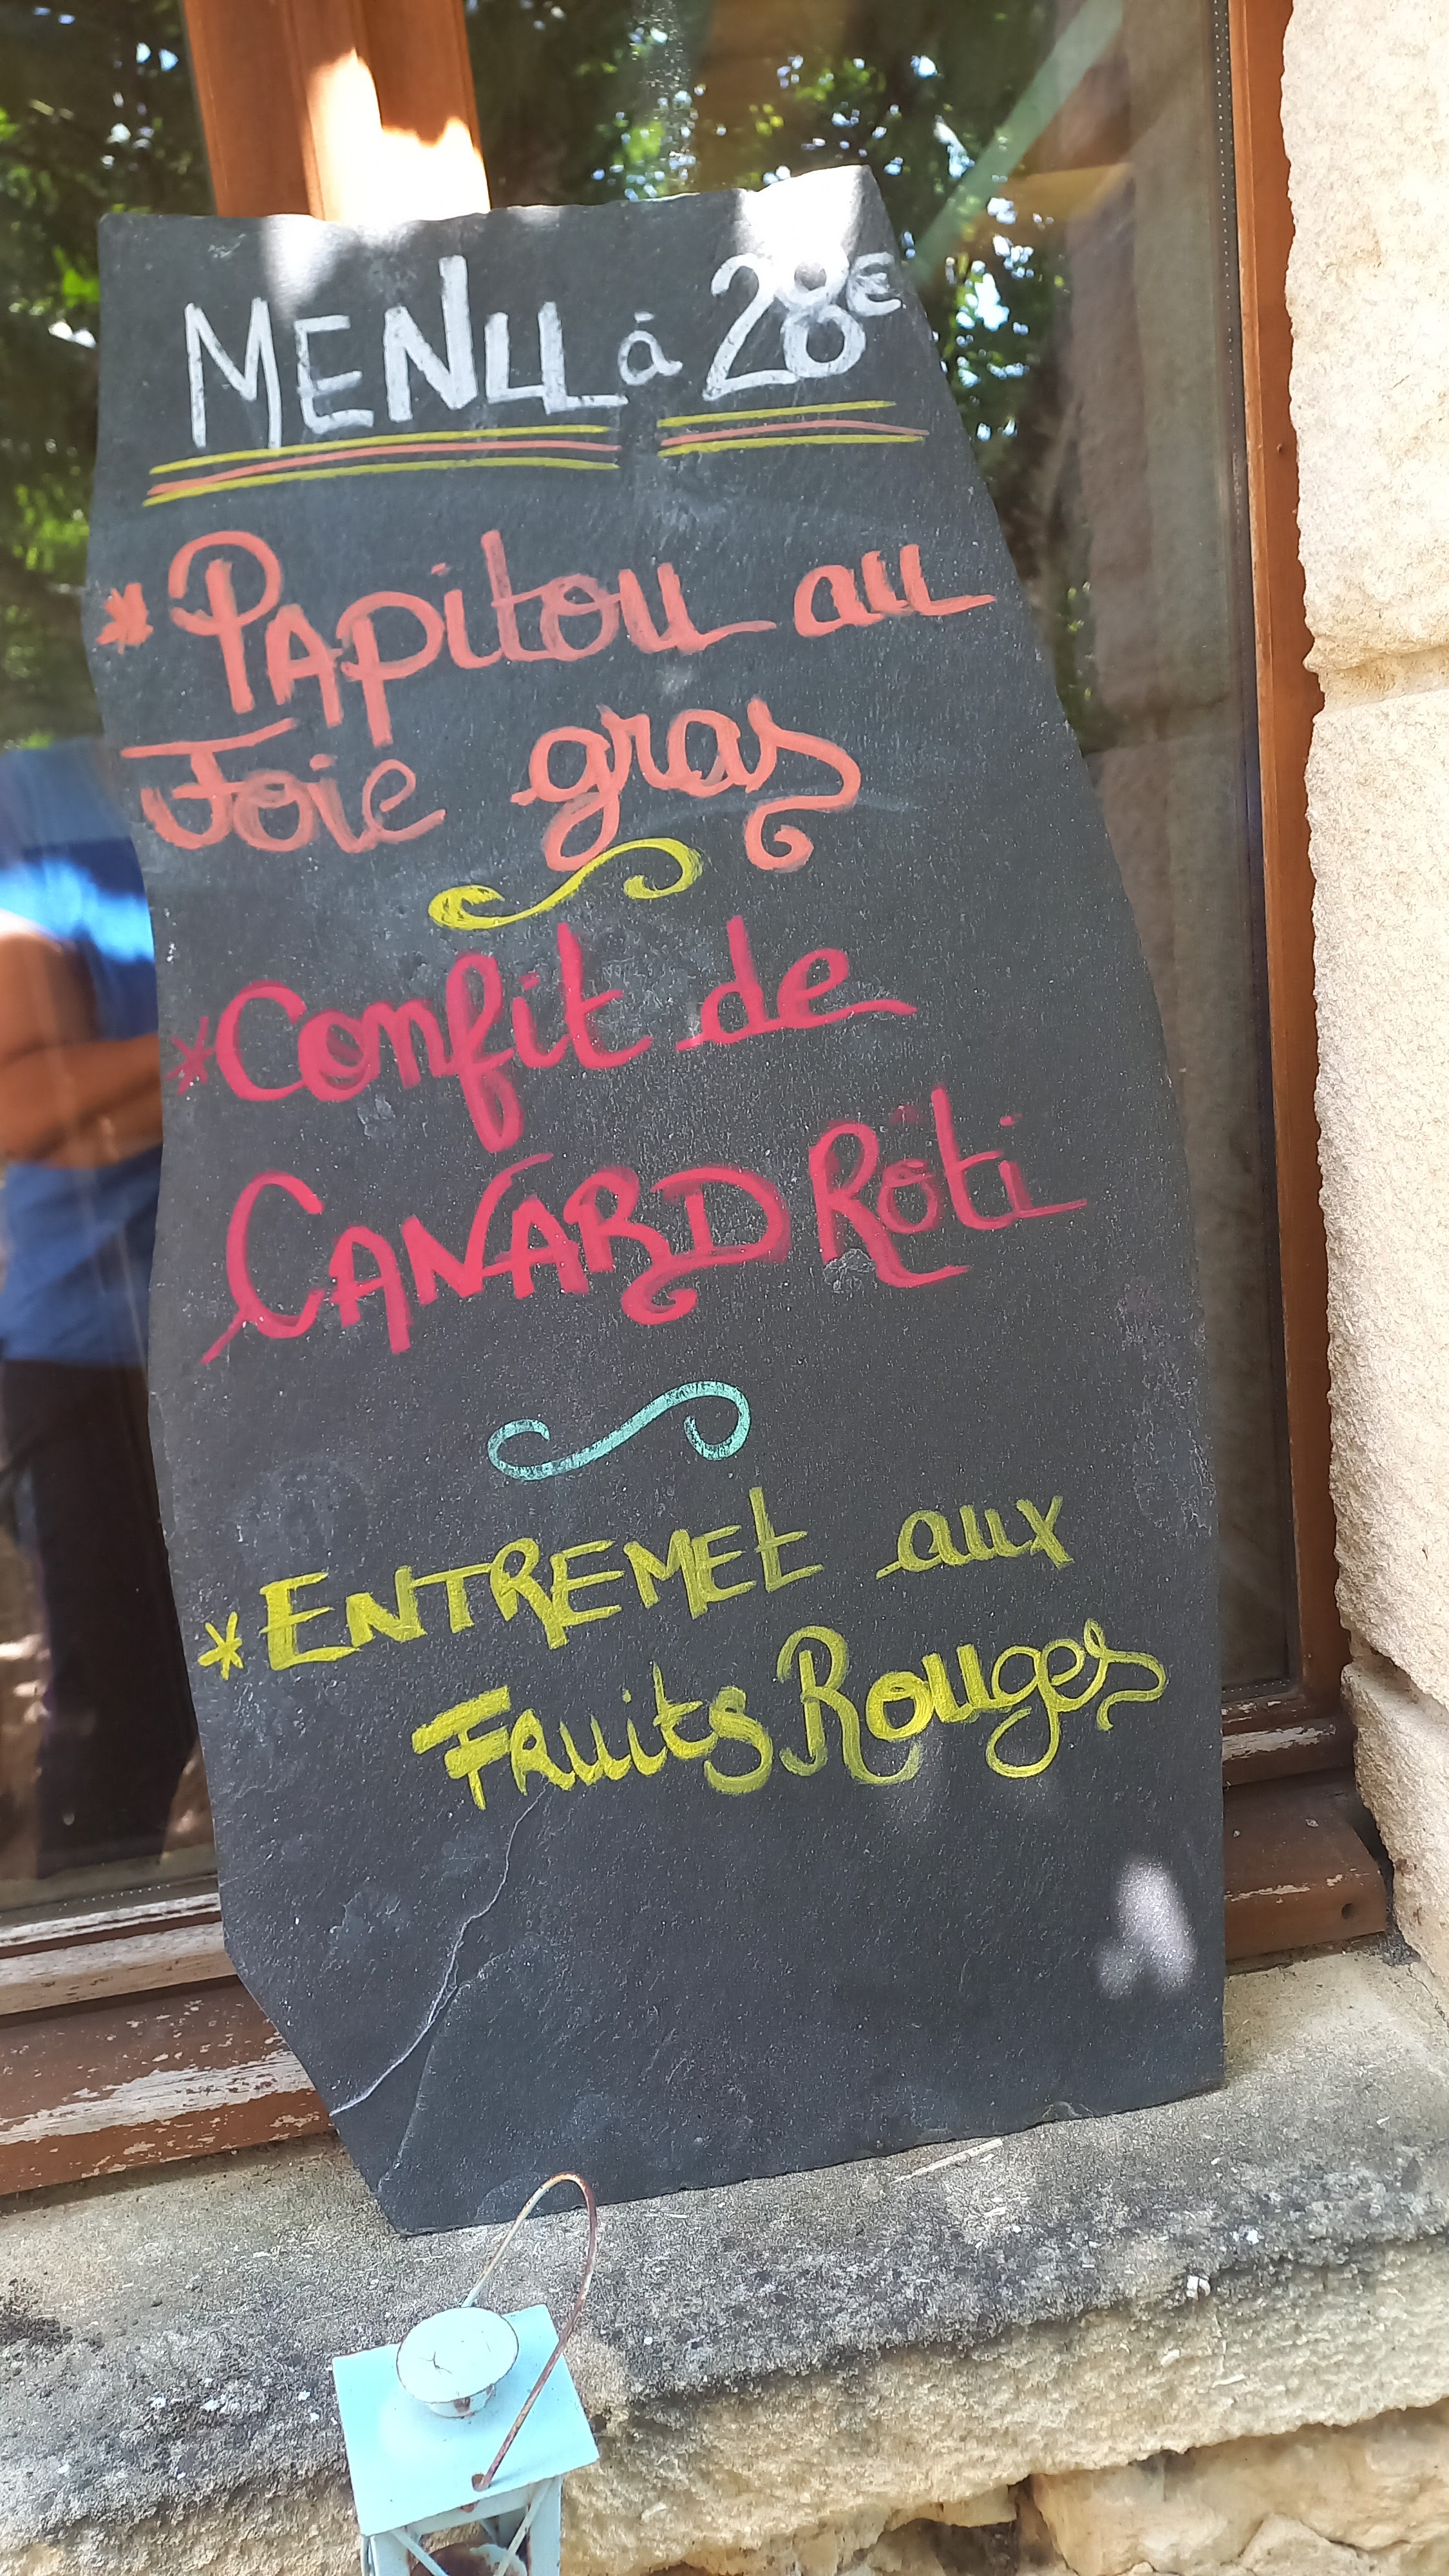 MENU à 28€
* PAPitou au
Foie gras
* Confit de
CANARD Rôti
* ENTREMEt aux
FRuits Rouges